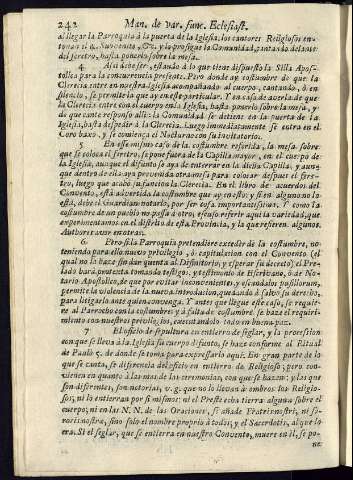 242 Man. de var. func. Ecclesiast.
al llegar la Parroquia à la puerta de la Iglesia, los cantores Religiosos en-
tonan el Subvenite, &c. y lo prosigue la Comunidad, cantando delante
del feretro, hasta ponerlo sobre la mesa.
4. Assi debe ser, estando à lo que tiene dispuesto la Silla Apos-
tolica para la concurrencia presente. Pero donde ay costumbre de que la
Clerecia entre en nuestra Iglesia acompañando al cuerpo, cantando, ò en
silencio, se permite lo que ay en este particular. Y en caso de averla de que
la Clerecia entre con el cuerpo en la Iglesia, hasta ponerlo sobre la mesa, y
de que cante responso alli: la Comunidad se detiene en la puerta de la
Iglesia, hasta despedir à la Clerecia. Luego immediatamente se entra en el
Coro baxo, y se comiença el Nocturno con su invitatorio.
5 En esse mismo caso de la costumbre referida, la mesa sobre
que se coloca el feretro, se pone fuera de la Capilla mayor, en el cuerpo de
la Iglesia, aunque el difunto se aya de enterrar en la dicha Capilla, y aun-
que dentro de ella aya prevenida otra mesa para colocar despues el fere-
tro, luego que acabò su funcion la Clerecia. En el libro de acuerdos del
Convento, està advertida la costumbre que ay en esto: y si en alguno no lo
està, debe el Guardian notarlo, por ser cosa importantissima. Y como la
costumbre de un pueblo no passa à otro, es caso referir aqui la variedad, que
experimentamos en el distrito de esta Provincia, y la que refieren algunos
Authores aver en otras.
6. Pero si la Parroquia pretendiere exceder de la costumbre, no
teniendo para ello nuevo privilegio, ò capitulacion con el Convento (la
qual no la hace sin dar quenta al Difinitorio, y esperar su decreto) el Pre-
lado harà protexta tomando testigos, y testimonio de Escrivano, ò de No-
tario Apostolico, de que por evitar inconvenientes, y escandalos pusillorum,
permite la violencia de la nueva introduccion, quedando à salvo su derecho,
para litigarlo ante quien convenga. Y antes que llegue este caso, se requie-
re al Parroco con la costumbre: y à falta de costumbre, se haze el requiri-
miento con nuestros privilegios, executandolo todo en buena paz.
7 El oficio de sepultura en entierro de seglar, y la procession
con que se lleva à la Iglesia su cuerpo difunto, se haze conforme al Ritual
de Paulo V. de donde se toma para expressarlo aqui. En gran parte de lo
que se canta, se diferencia del oficio en entierro de Religioso; pero con-
vienen en quanto à las mas de las ceremonias, con que se hazen: y las que
son diferentes, son notorias, v. g. que no lo llevan à ombros los Religio-
sos, ni lo entierran por si mismos: ni el Preste echa tierra alguna sobre el
cuerpo; ni en las N. N. de las Oraciones, se añade Fratris nostri, ni so-
roris nostræ, sino solo el nombre proprio à todos, y el Sacerdotis, al que lo
era. Si el seglar, que se entierra en nuestro Convento, muere en èl, se po-
ne